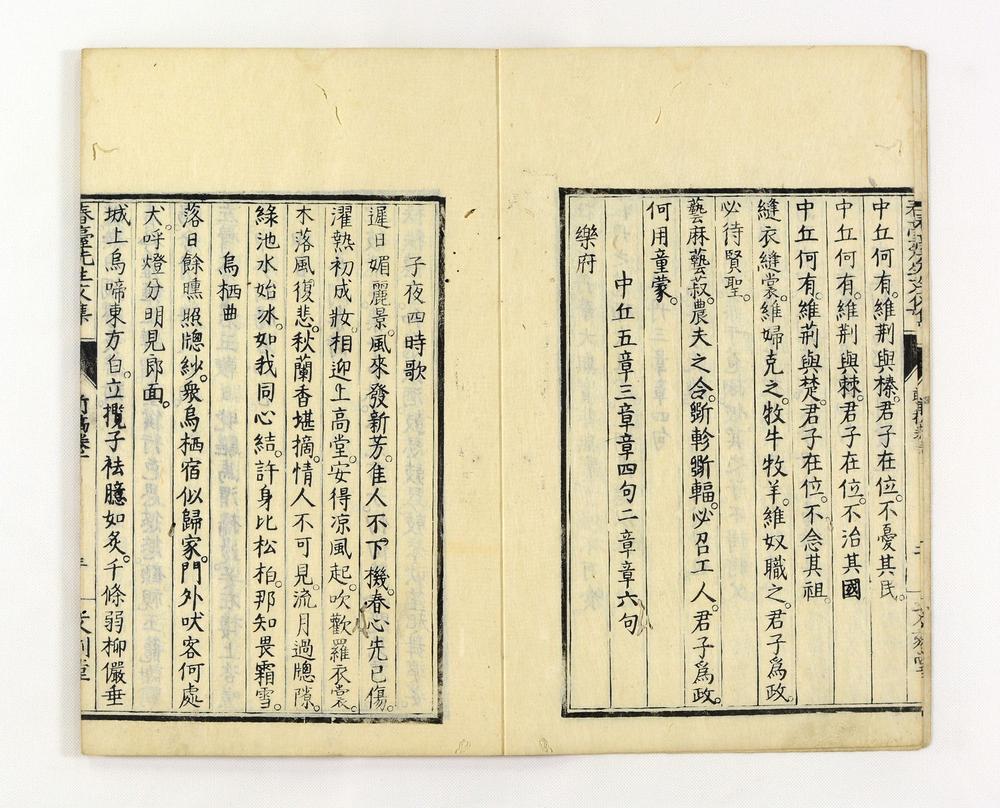 中丘何有。維荆與榛。君子在位。不憂其民。
中丘何有。維荆與棘。君子在位。不治其國
中丘何有。維荆與楚。君子在位。不念其祖。
縫衣縫裳。維婦克之。牧牛牧羊。維奴職之。君子爲政。
必待賢聖。
藝麻藝菽。農夫之合。斲軫斲輻。必召工人。君子爲政。
何用童蒙。
中丘五章三章章四句二章章六句
樂府
子夜四時歌
遲日媚麗景。風來發新芳。佳人不下機。春心先已傷。
濯熱初成妝。相迎上高堂。安得凉風起。吹歡羅衣裳。
木落風復悲。秋蘭香堪摘。情人不可見。流月過牕隙。
綠池水始冰。如我同心結。許身比松柏。那知畏霜雪。
烏栖曲
落日餘曛照牕紗。衆烏栖宿似歸家。門外吠客何處
犬。呼燈分明見郎面。
城上烏啼東方白。立攬子袪臆如炙。千條弱柳儼垂
春臺先生文集 前稿卷一